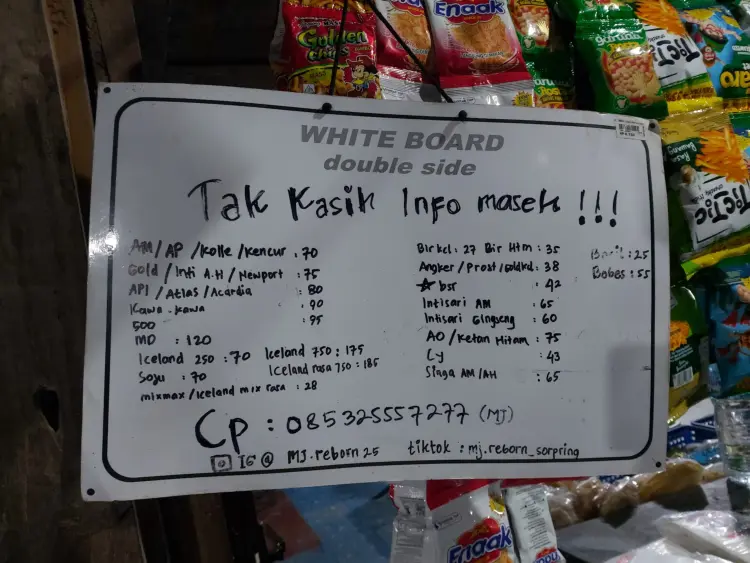 Golden
Enaak
garuda
TicTac
WHITE BOARD
double side
Tak Kasih Info maseh !!!
AM/AP/Kolle/Kencur : 70
Gold/Inti A.H/Newport : 75
API/Atlas/Acardia : 80
Kawa-kawa : 90
500 : 95
MD : 120
Iceland 250 : 70 Iceland 750 : 175
Soju : 70 Iceland rasa 750 : 185
mixmax/Iceland mix rasa : 28
Birkcl : 27 Bir Htm : 35
Angker/Prost/Goldkd : 38
☆ bsr : 42
Intisari AM : 65
Intisari Gingseng : 60
AO/Ketan Hitam : 75
Cy : 43
Slaga AM/AH : 65
: 25
Bobes : 55
Cp : 085325557277 (MJ)
IG @ MJ.reborn25 tiktok : mj.reborn_sorpring
Enaak